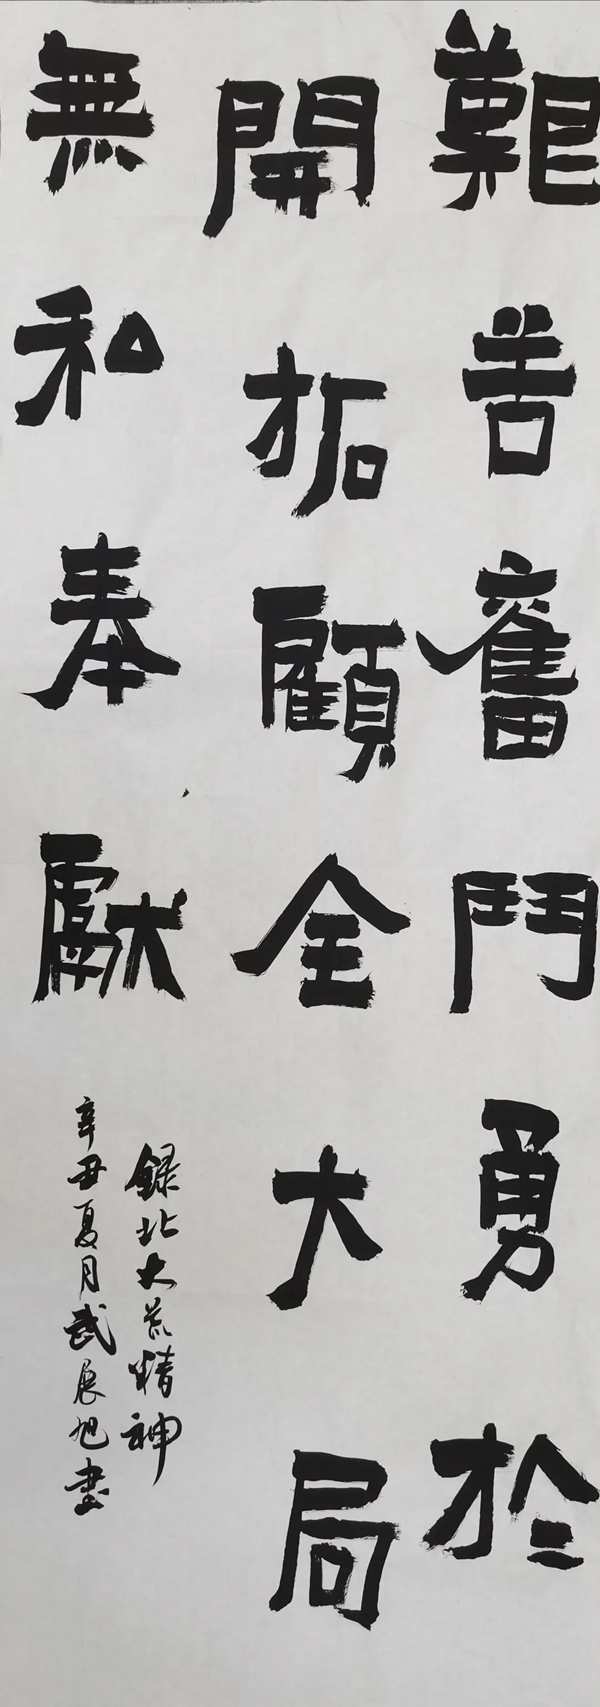 艱苦奮鬥勇於
開拓顧全大局
無私奉獻
録北大荒精神
辛丑夏月武展旭書